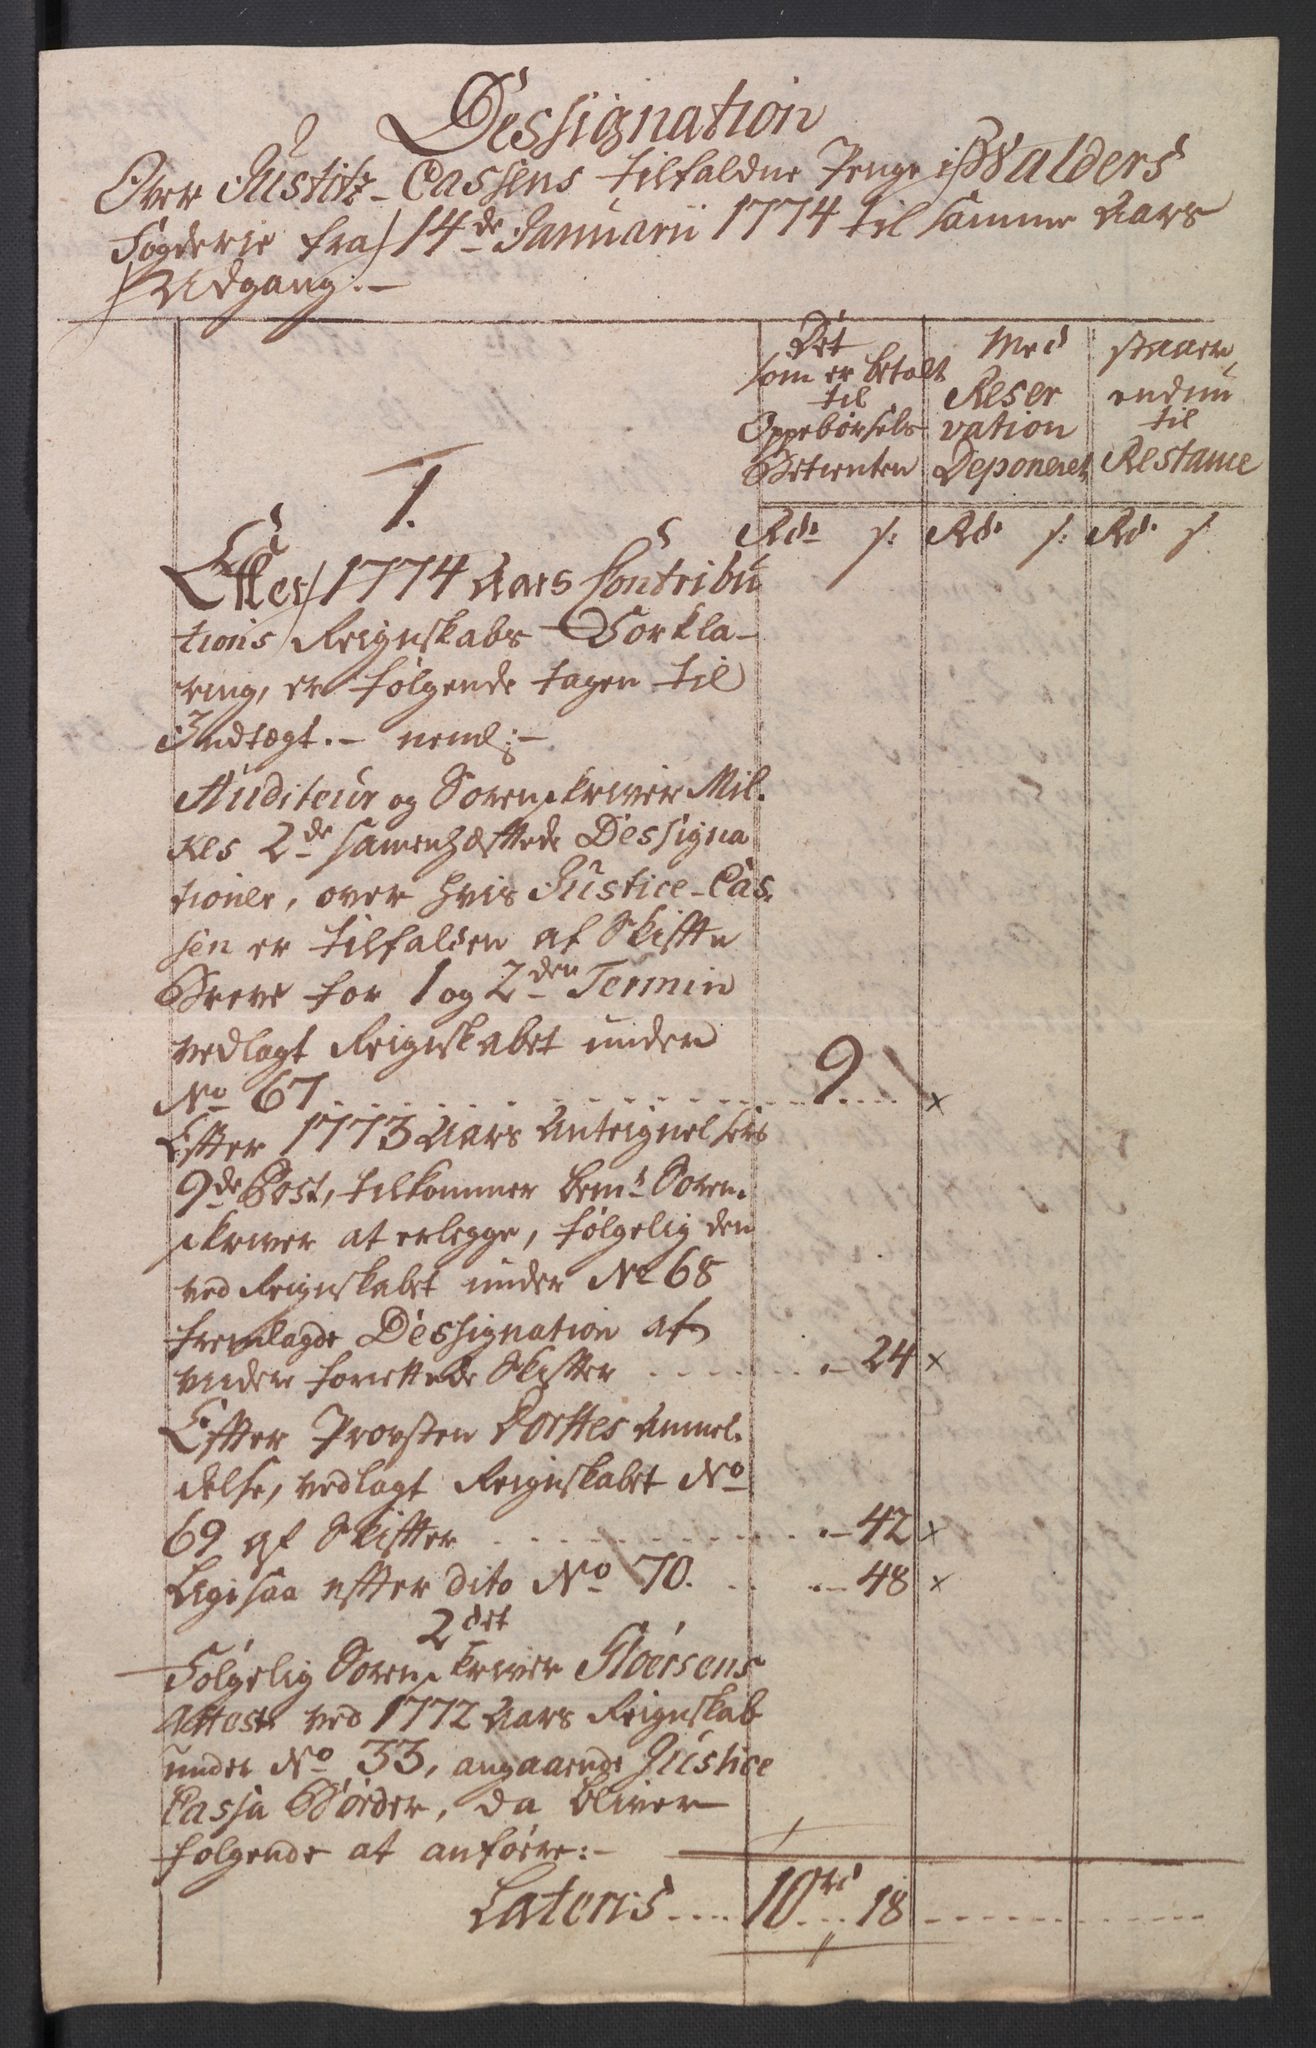 Dessignation
Over Justitz-Cassens tilfaldne Penge i Walders
Fogderie fra 14de Januarii 1774 til samme Aars
Udgang.-
Det som er betalt til Oppebørsels Betienten
Med Reservation Deponeret
staaer endnu til Restance
1.
Rd. s: Rd. s: Rd. s.
Efter 1774 Aars Contribu
tions Reignskabs Forkla-
ring, er følgende tagen til
Indtægt.- neml:-
Auditeur og Sorenskriver Mil.
kes 2de samenhæftede Dessigna
tioner, over hvis Justice-Cas.
sen er tilfalden af Skifte
Breve for 1 og 2den Termin
vedlagt Reignskabet under
No 67 . . . . . . . . 9 x
Efter 1773 Aars Anteignelsers
9de Post, tilkommer bemte Soren.
skriver at erlegge, følgelig den
ved Reignskabet under No 68
fremlagde Dessignation af
under forrettede Skifter . . . . . - 24 x
Efter Provsten Anmel.
delse, vedlagt Reignskabet No
69 af Skifter . . . . . . . - 42 x
Ligesaa efter dito No 70. . . . - 48 x
2det
Følgelig Sorenskriver
Attest ved 1772 Aars Reignskab
under No 33, angaaende Justice
Cassa Bøder, da bliver
følgende at anføre:-
Lateris . . . . 10 rd . . . 18